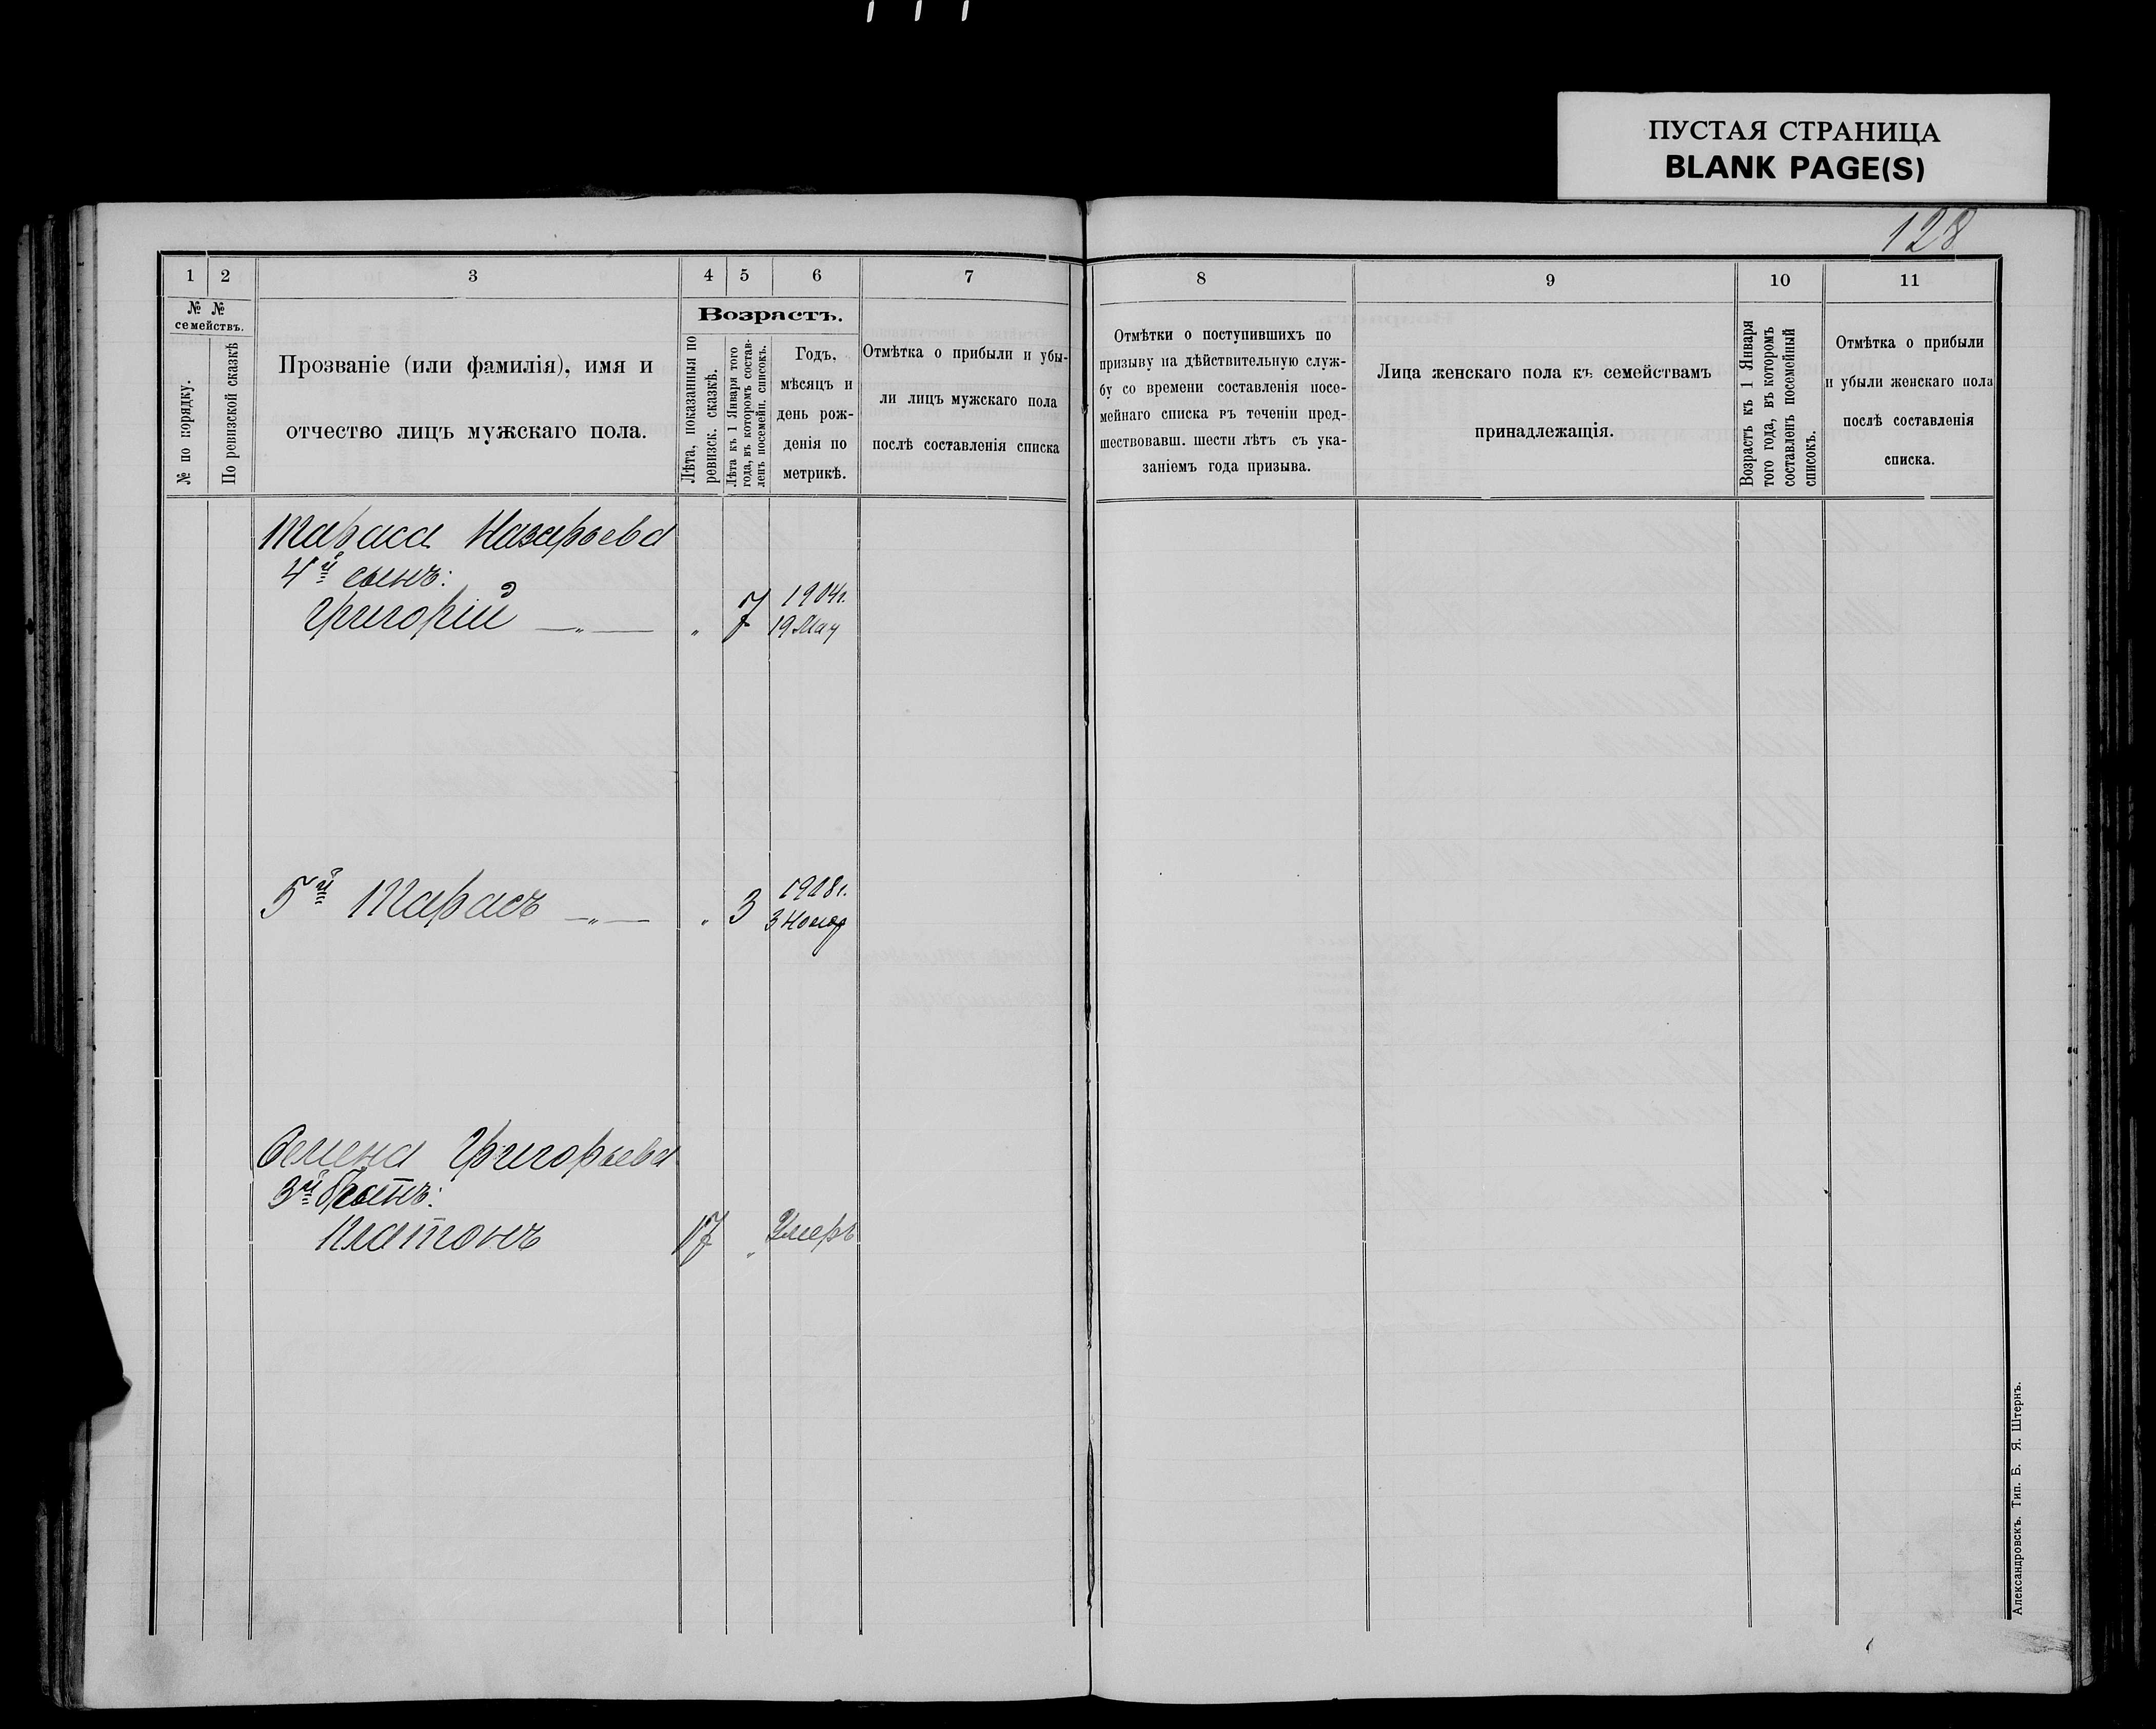 ПУСТАЯ СТРАНИЦА
BLANK PAGE(S)
128
1 2 3 4 5 6 7 8 9 10 11
№ №
семействъ.
№ по порядку.
По ревизской сказкѣ
Прозваніе (или фамилія), имя и
отчество лицъ мужскаго пола.
Возрастъ.
Лѣта, показанныя по
ревизск. сказкѣ.
Лѣта къ 1 Января того
года, въ которомъ состав-
ленъ посемейн. списокъ.
Годъ,
мѣсяцъ и
день рож-
денія по
метрикѣ.
Отмѣтка о прибыли и убы-
ли лицъ мужскаго пола
послѣ составленія списка
Отмѣтки о поступившихъ по
призыву на дѣйствительную служ-
бу со времени составленія посе-
мейнаго списка въ теченіи пред-
шествовавш. шести лѣтъ съ ука-
заніемъ года призыва.
Лица женскаго пола къ семействамъ
принадлежащія.
Возрастъ къ 1 Января
того года, въ которомъ
составленъ посемейный
списокъ.
Отмѣтка о прибыли
и убыли женскаго пола
послѣ составленія
списка.
Тараса Назарьева
4й сынъ:
Григорій —„— „ 7 1904г.
19 Мая
5й Тарасъ —„— „ 3 1908г.
3
Семена Григорьева
3й
Платонъ 17 „ Умеръ
Александровскъ. Тип. Б. Я. Штернъ.